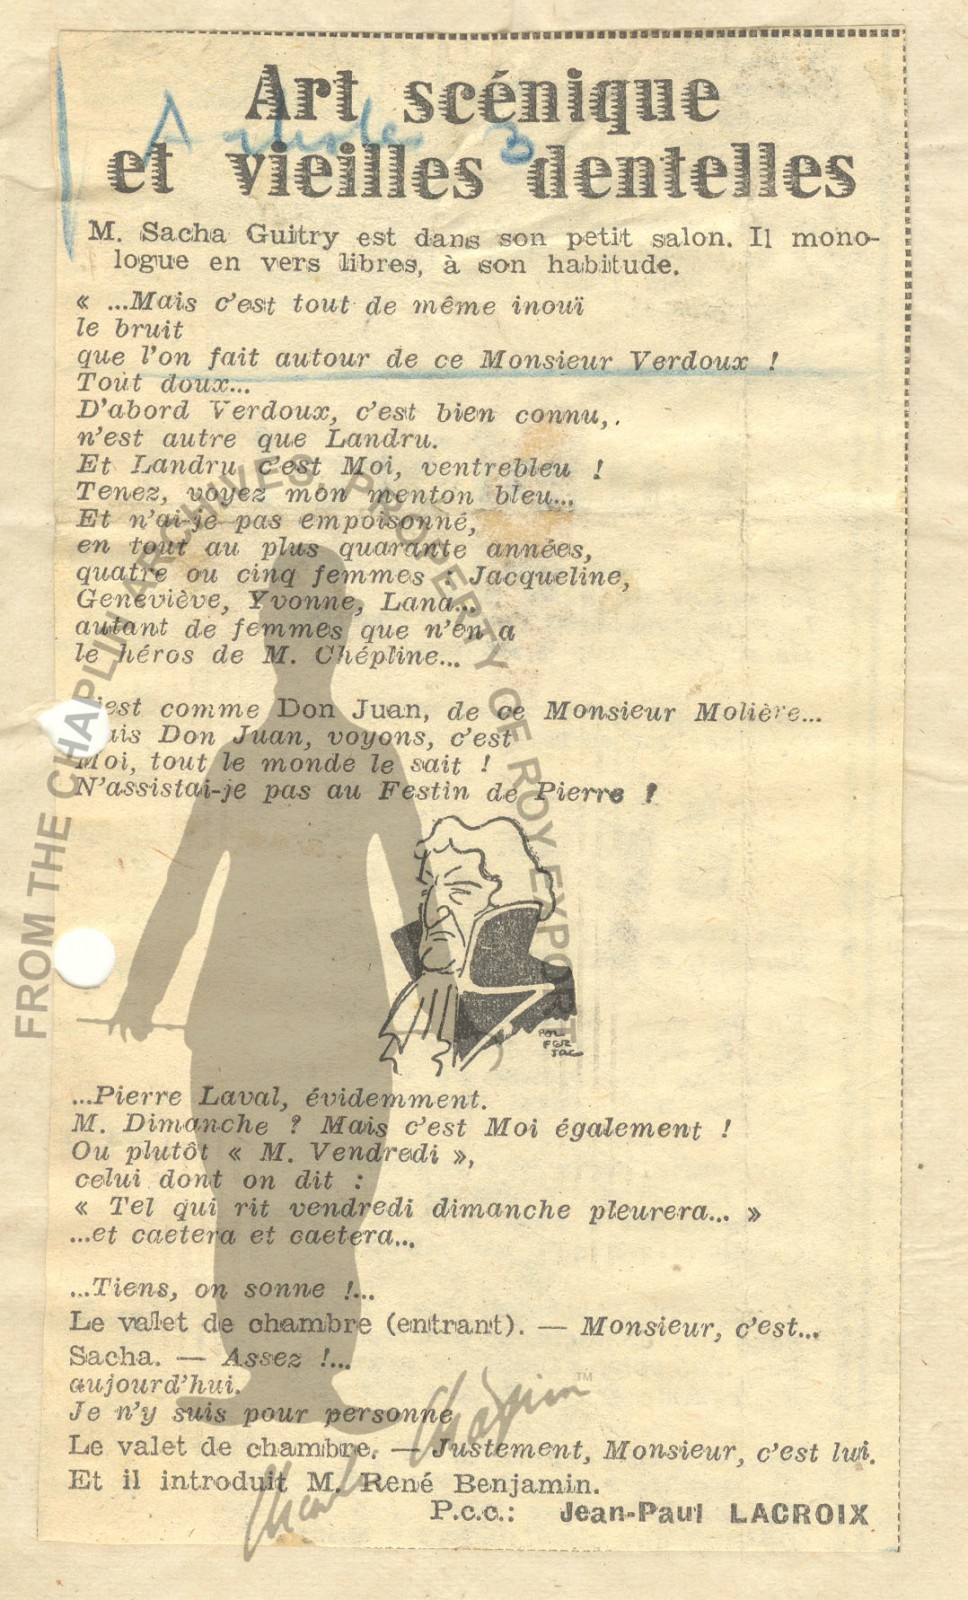 Art scénique
et vieilles dentelles
M. Sacha Guitry est dans son petit salon. Il mono-
logue en vers libres, à son habitude.
« ...Mais c'est tout de même inouï
le bruit
que l'on fait autour de ce Monsieur Verdoux !
Tout doux...
D'abord Verdoux, c'est bien connu,.
n'est autre que Landru.
Et Landru c'est Moi, ventrebleu !
Tenez, voyez mon menton bleu...
Et n'ai-je pas empoisonné,
en tout au plus quarante années,
quatre ou cinq femmes : Jacqueline,
Geneviève, Yvonne, Lana...
autant de femmes que n'en a
le héros de M. Chépline...
'est comme Don Juan, de ce Monsieur Molière...
ais Don Juan, voyons, c'est
Moi, tout le monde le sait !
N'assistai-je pas au Festin de Pierre ?
POL
FER
JAC
...Pierre Laval, évidemment.
M. Dimanche ? Mais c'est Moi également !
Ou plutôt « M. Vendredi »,
celui dont on dit :
« Tel qui rit vendredi dimanche pleurera... »
...et caetera et caetera...
...Tiens, on sonne !...
Le valet de chambre (entrant). — Monsieur, c'est...
Sacha. — Assez !...
aujourd'hui.
Je n'y suis pour personne
Le valet de chambre. — Justement, Monsieur, c'est lui.
Et il introduit M. René Benjamin.
P.c.c.: Jean-Paul LACROIX
FROM THE CHAPLIN ARCHIVES. PROPERTY OF ROY EXPORT
Charles Chaplin TM